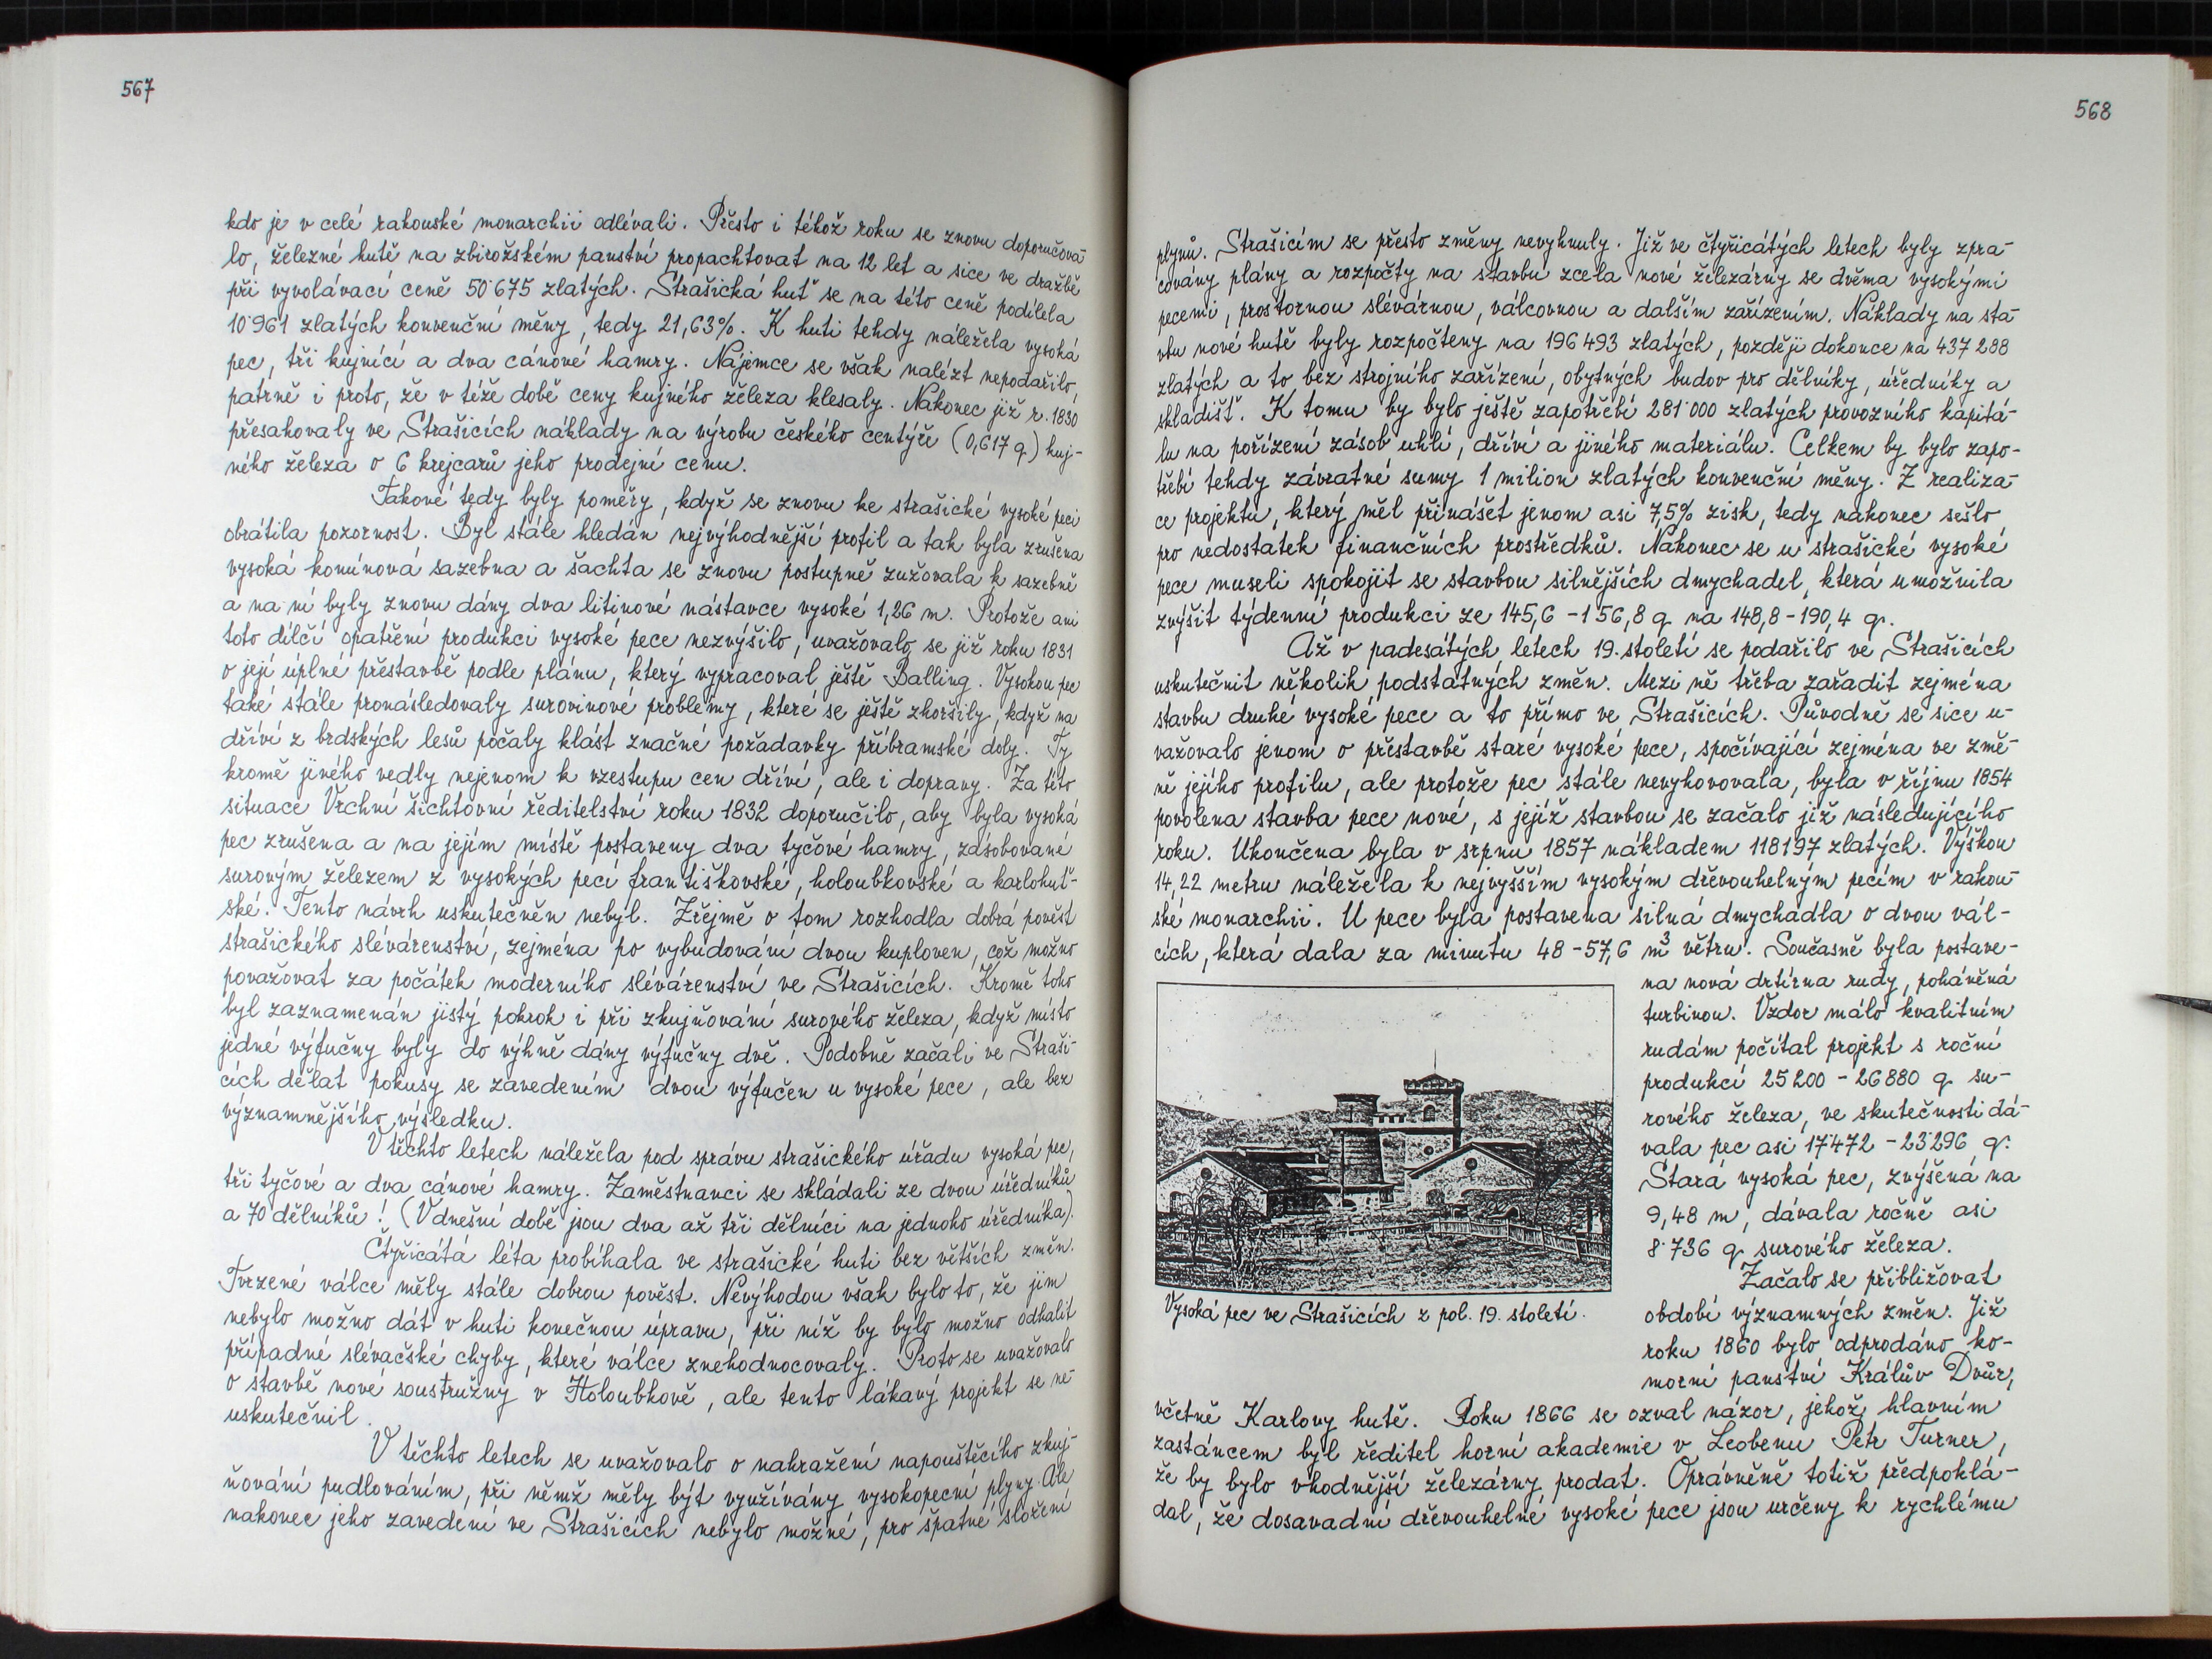 567
kdo je v celé rakouské monarchii odlévali. Přesto i téhož roku se znovu doporučova-
lo, železné hutě na zbirožském panství propachtovat na 12 let a sice ve dražbě
při vyvolávací ceně 50'675 zlatých. Strašická huť se na této ceně podílela
10'961 zlatých konvenční měny, tedy 21,63%. K huti tehdy náležela vysoká
pec, tři kujnící a dva cánové hamry. Nájemce se však nalézt nepodařilo,
patrně i proto, že v téže době ceny kujného železa klesaly. Nakonec již r. 1830
přesahovaly ve Strašicích náklady na výrobu českého centýře (0,617 q) kuj-
ného železa o 6 krejcarů jeho prodejní cenu.
Takové tedy byly poměry, když se znovu ke strašické vysoké peci
obrátila pozornost. Byl stále hledán nejvýhodnější profil a tak byla zrušena
vysoká komínová sazebna a šachta se znovu postupně zužovala k sazebně
a na ní byly znovu dány dva litinové nástavce vysoké 1,26 m. Protože ani
toto dílčí opatření produkci vysoké pece nezvýšilo, uvažovalo se již roku 1831
o její úplné přestavbě podle plánu, který vypracoval ještě Balling. Vysokou pec
také stále pronásledovaly surovinové problémy, které se ještě zhoršily, když na
dříví z brdských lesů počaly klást značné požadavky příbramské doly. Ty
kromě jiného vedly nejenom k vzestupu cen dříví, ale i dopravy. Za této
situace Vrchní šichtovní ředitelství roku 1832 doporučilo, aby byla vysoká
pec zrušena a na jejím místě postaveny dva tyčové hamry, zásobované
surovým železem z vysokých pecí františkovské, holoubkovské a karlohuť-
ské. Tento návrh uskutečněn nebyl. Zřejmě o tom rozhodla dobrá pověst
strašického slévárenství, zejména po vybudování dvou kuploven, což možno
považovat za počátek moderního slévárenství ve Strašicích. Kromě toho
byl zaznamenán jistý pokrok i při zkujňování surového železa, když místo
jedné výfučny byly do výhně dány výfučny dvě. Podobně začali ve Straši-
cích dělat pokusy se zavedením dvou výfučen u vysoké pece, ale bez
významnějšího výsledku.
V těchto letech náležela pod správu strašického úřadu vysoká pec,
tři tyčové a dva cánové hamry. Zaměstnanci se skládali ze dvou úředníků
a 70 dělníků! (V dnešní době jsou dva až tři dělníci na jednoho úředníka).
Čtyřicátá léta probíhala ve strašické huti bez větších změn.
Tvrzené válce měly stále dobrou pověst. Nevýhodou však bylo to, že jim
nebylo možno dát v huti konečnou úpravu, při níž by bylo možno odhalit
případné slévačské chyby, které válce znehodnocovaly. Proto se uvažovalo
o stavbě nové soustružny v Holoubkově, ale tento lákavý projekt se ne-
uskutečnil.
V těchto letech se uvažovalo o nahražení napouštěcího zkuj-
ňování pudlováním, při němž měly být využívány vysokopecní plyny. Ale
nakonec jeho zavedení ve Strašicích nebylo možné, pro špatné složení
568
plynů. Strašicím se přesto změny nevyhnuly. Již ve čtyřicátých letech byly zpra-
covány plány a rozpočty na stavbu zcela nové železárny se dvěma vysokými
pecemi, prostornou slévárnou, válcovnou a dalším zařízením. Náklady na sta-
vbu nové hutě byly rozpočteny na 196'493 zlatých, později dokonce na 437'288
zlatých a to bez strojního zařízení, obytných budov pro dělníky, úředníky a
skladišť. K tomu by bylo ještě zapotřebí 281'000 zlatých provozního kapitá-
lu na pořízení zásob uhlí, dříví a jiného materiálu. Celkem by bylo zapo-
třebí tehdy závratné sumy 1 milion zlatých konvenční měny. Z realiza-
ce projektu, který měl přinášet jenom asi 7,5% zisk, tedy nakonec sešlo
pro nedostatek finančních prostředků. Nakonec se u strašické vysoké
pece museli spokojit se stavbou silnějších dmychadel, která umožnila
zvýšit týdenní produkci ze 145,6 - 156,8 q na 148,8 - 190,4 q.
Až v padesátých letech 19. století se podařilo ve Strašicích
uskutečnit několik podstatných změn. Mezi ně třeba zařadit zejména
stavbu druhé vysoké pece a to přímo ve Strašicích. Původně se sice u-
važovalo jenom o přestavbě staré vysoké pece, spočívající zejména ve změ-
ně jejího profilu, ale protože pec stále nevyhovovala, byla v říjnu 1854
povolena stavba pece nové, s jejíž stavbou se začalo již následujícího
roku. Ukončena byla v srpnu 1857 nákladem 118'197 zlatých. Výškou
14,22 metru náležela k nejvyšším vysokým dřevouhelným pecím v rakou-
ské monarchii. U pece byla postavena silná dmychadla o dvou vál-
cích, která dala za minutu 48 - 57,6 m³ větru. Současně byla postave-
na nová drtírna rudy, poháněná
turbinou. Vzdor málo kvalitním
rudám počítal projekt s roční
produkcí 25'200 - 26'880 q su-
rového železa, ve skutečnosti dá-
vala pec asi 17'472 - 23'296 q.
Stará vysoká pec, zvýšená na
9,48 m, dávala ročně asi
8'736 q surového železa.
Začalo se přibližovat
období významných změn. Již
roku 1860 bylo odprodáno ko-
morní panství Králův Dvůr,
Vysoká pec ve Strašicích z pol. 19. století.
včetně Karlovy hutě. Roku 1866 se ozval názor, jehož hlavním
zastáncem byl ředitel horní akademie v Leobenu Petr Turner,
že by bylo vhodnější železárny prodat. Oprávněně totiž předpoklá-
dal, že dosavadní dřevouhelné vysoké pece jsou určeny k rychlému